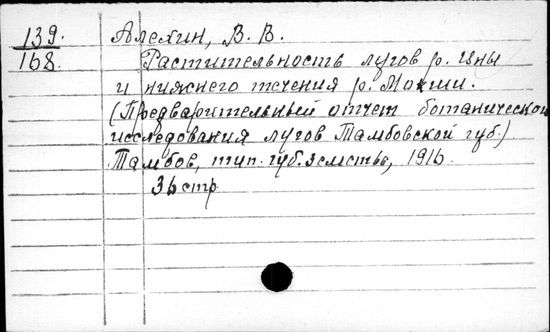 139.
168.
Алехин, В. В.
Растительность лугов р. Цны
и нижнего течения р. Мокши.
(Предварительный отчет ботанической
исследования лугов Тамбовской губ.)
Тамбов, тип. губ. земства, 1916
36 стр